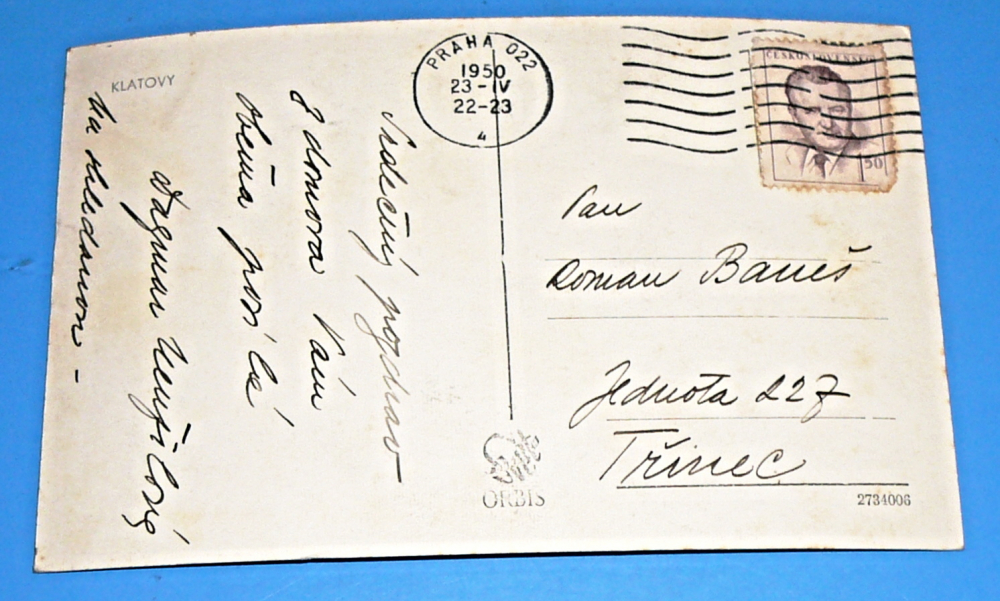 KLATOVY
Srdečný pozdrav
z domova Vám
oběma posílá
Dagmar
Na shledanou -
PRAHA 022
1950
23-IV
22-23
4
ČESKOSLOVENSKO
1,50
Pan
Roman Baneš
Jednota 227
Třinec
ORBIS
2734006